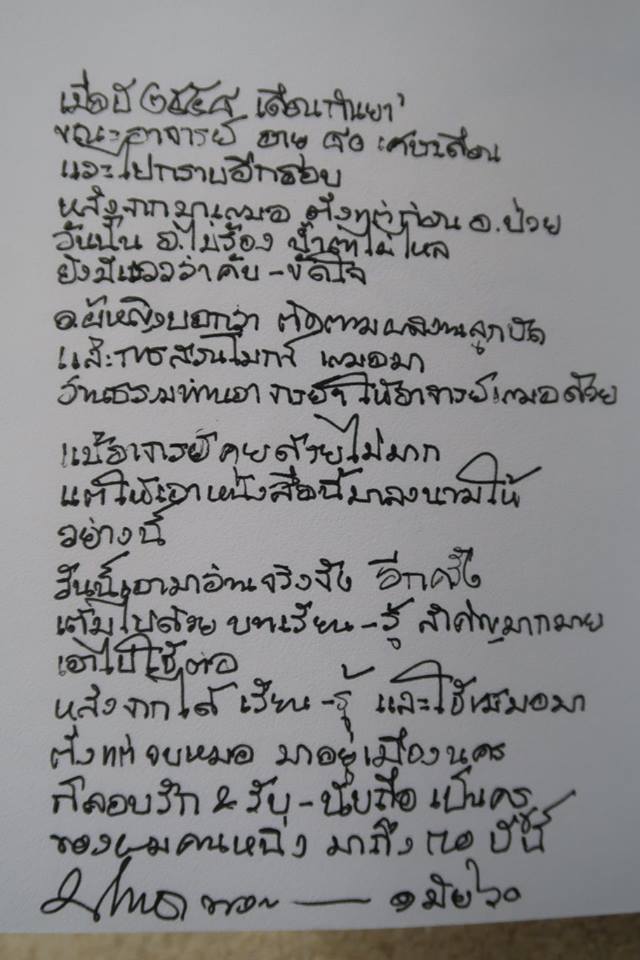 เมื่อปี ๒๕๕๔ เดือนกันยา'
ขณะอาจารย์ อายุ ๘๐ เศษเดือน
และไปกราบอีกรอบ
หลังจากมาเสมอ ตั้งแต่ก่อน อ.ป่วย
วันนั้น อ.ไม่ร้อง น้ำตาไม่ไหล
ยังมีแววว่าคับ-ขัดใจ
อ.ผู้หญิงบอกว่า ติดตามผลงานลูกปัด
และการสวนโมกข์ เสมอมา
อ่านธรรมท่านอาจารย์ฯ ให้อาจารย์เสมอด้วย
แม้อาจารย์คุยด้วยไม่มาก
แต่ให้เอาหนังสือนี้มาลงนามให้
อย่างนี้
วันนี้เอามาอ่านจริงจัง อีกครั้ง
เต็มไปด้วย บทเรียน-รู้ สำคัญมากมาย
เอาไปใช้ต่อ
หลังจากได้ เรียน-รู้ และใช้เสมอมา
ตั้งแต่จบหมอ มาอยู่เมืองนคร
ก็ลอบรัก & รับ-นับถือ เป็นครู
ของผมคนหนึ่ง มาถึง ณ บัดนี้
๑ มีย ๖๐